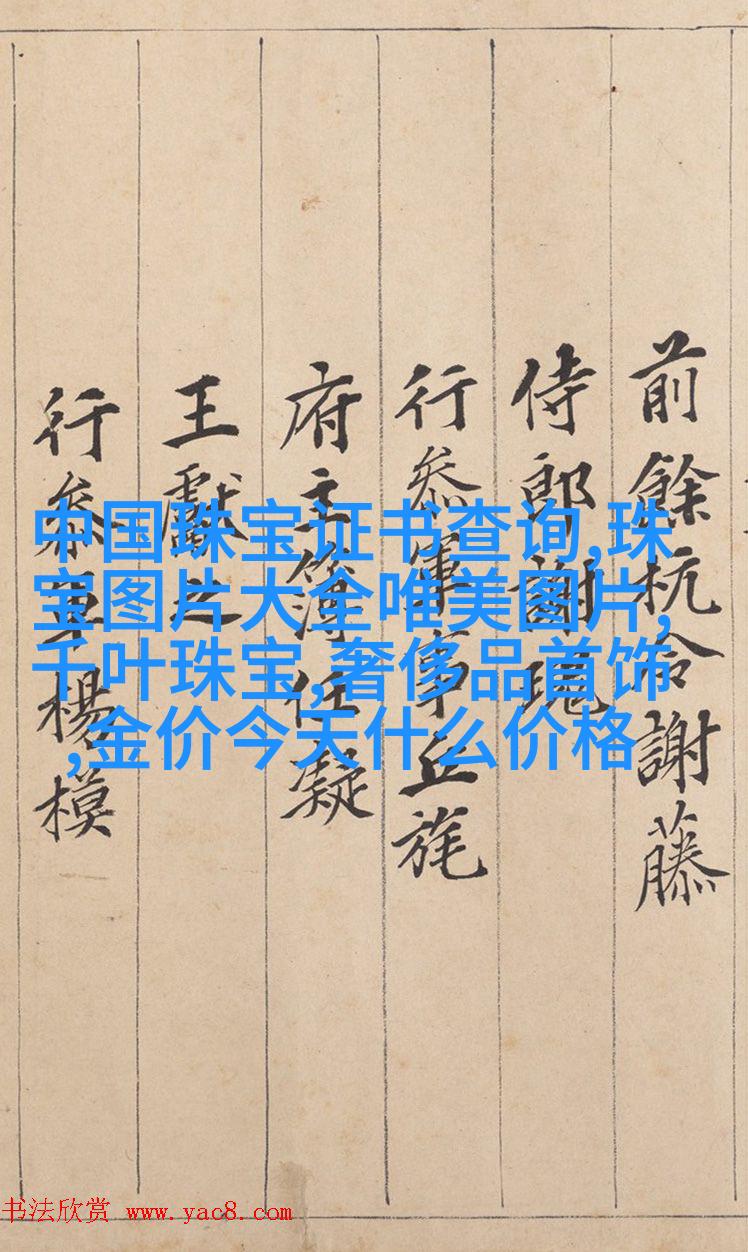 前餘杭令謝藤
侍郎謝瑰
行叅軍事丘旄
府主簿任凝
王獻之
行叅軍楊模
中国珠宝证书查询,珠
宝图片大全唯美图片,
千叶珠宝,奢侈品首饰
,金价今天什么价格
书法欣赏 www.yac8.com